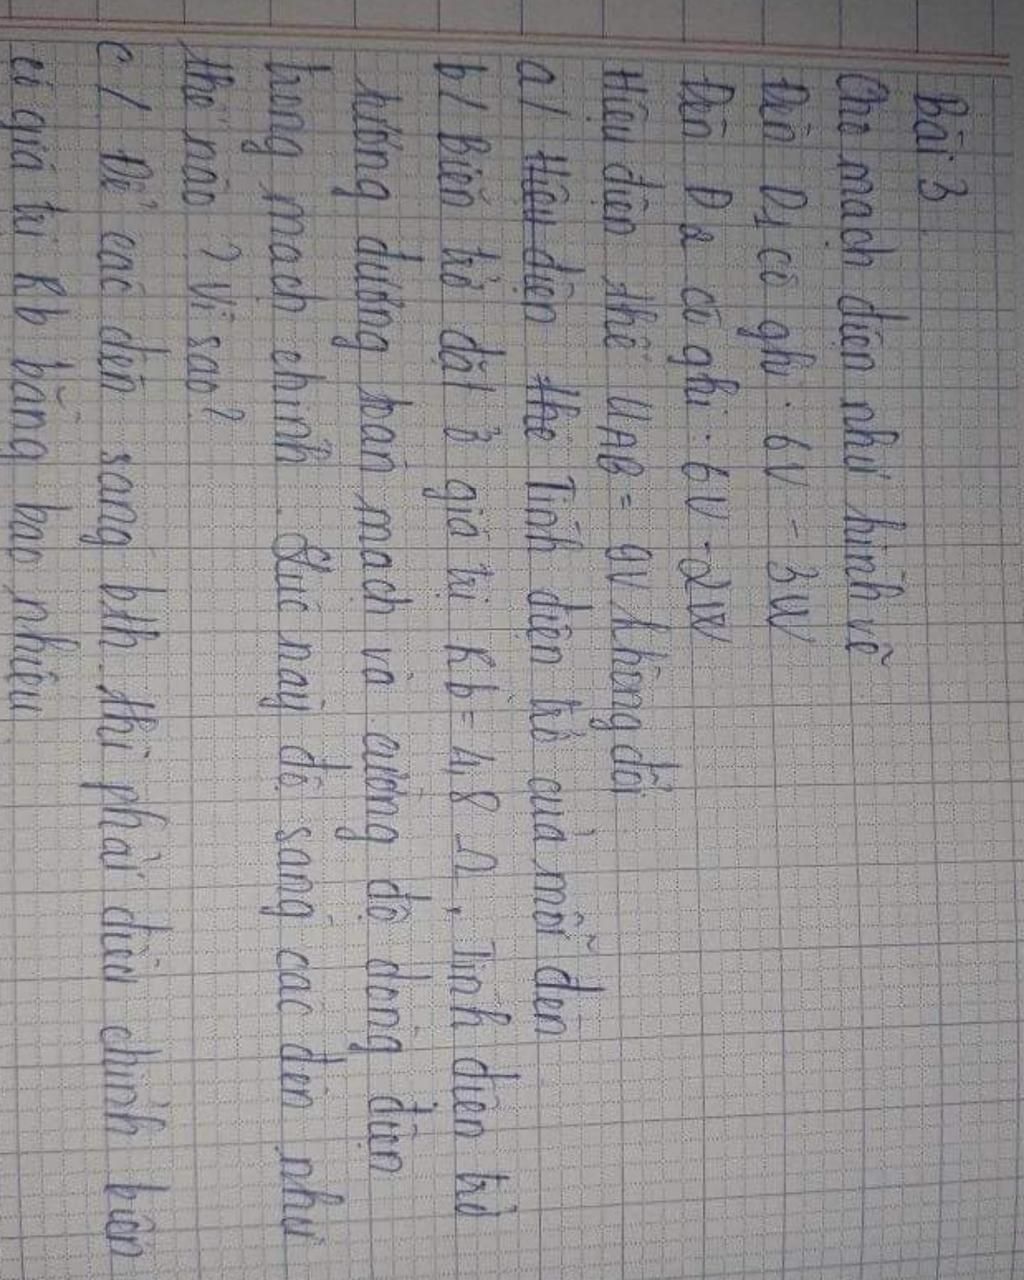 Bài 3
Cho mạch điện như hình vẽ
Đèn Đ1 có ghi: 6V - 3W
Đèn Đ2 có ghi: 6V - 2W
Hiệu điện thế UAB = 9V không đổi
a/ Hiệu điện thế Tính điện trở của mỗi đèn
b/ Biến trở đặt ở giá trị Rb = 4,8 Ω, Tính điện trở
tương đương toàn mạch và cường độ dòng điện
trong mạch chính. Lúc này độ sáng các đèn như
thế nào? Vì sao?
c/ Để các đèn sáng bth thì phải điều chỉnh biến
có giá trị Rb bằng bao nhiêu